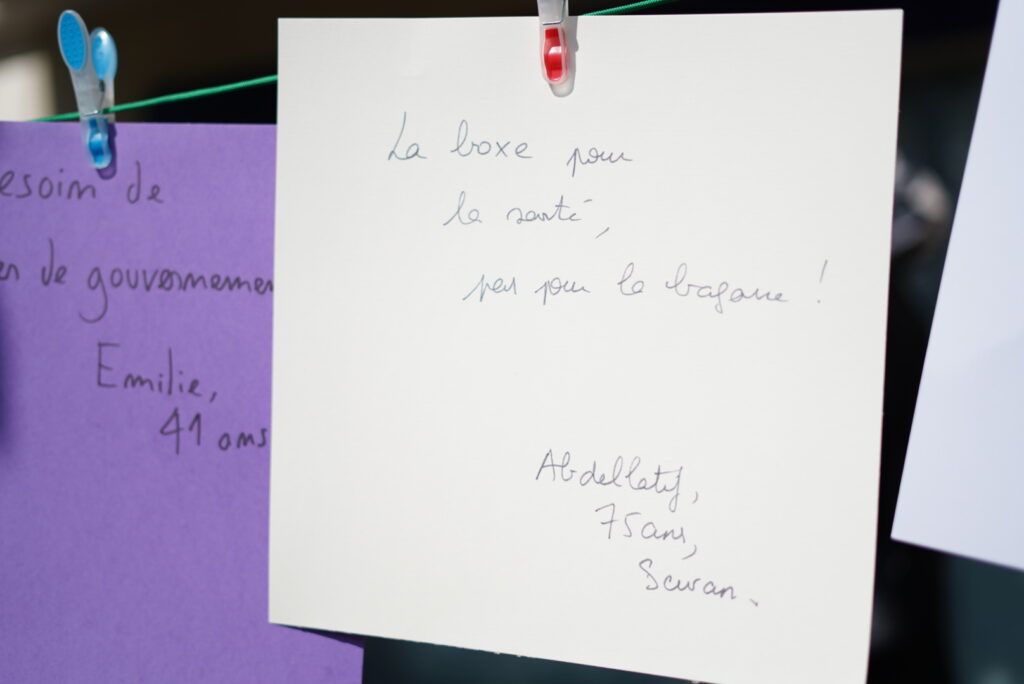 esoin de
en de gouvernemen
Emilie,
41 ans
La boxe pour
la santé,
pas pour la bagarre !
Abdellatif,
75 ans,
Sevran.